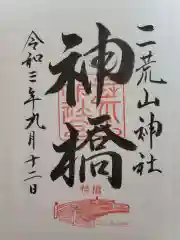 二荒山神社
神橋
令和三年九月十二日